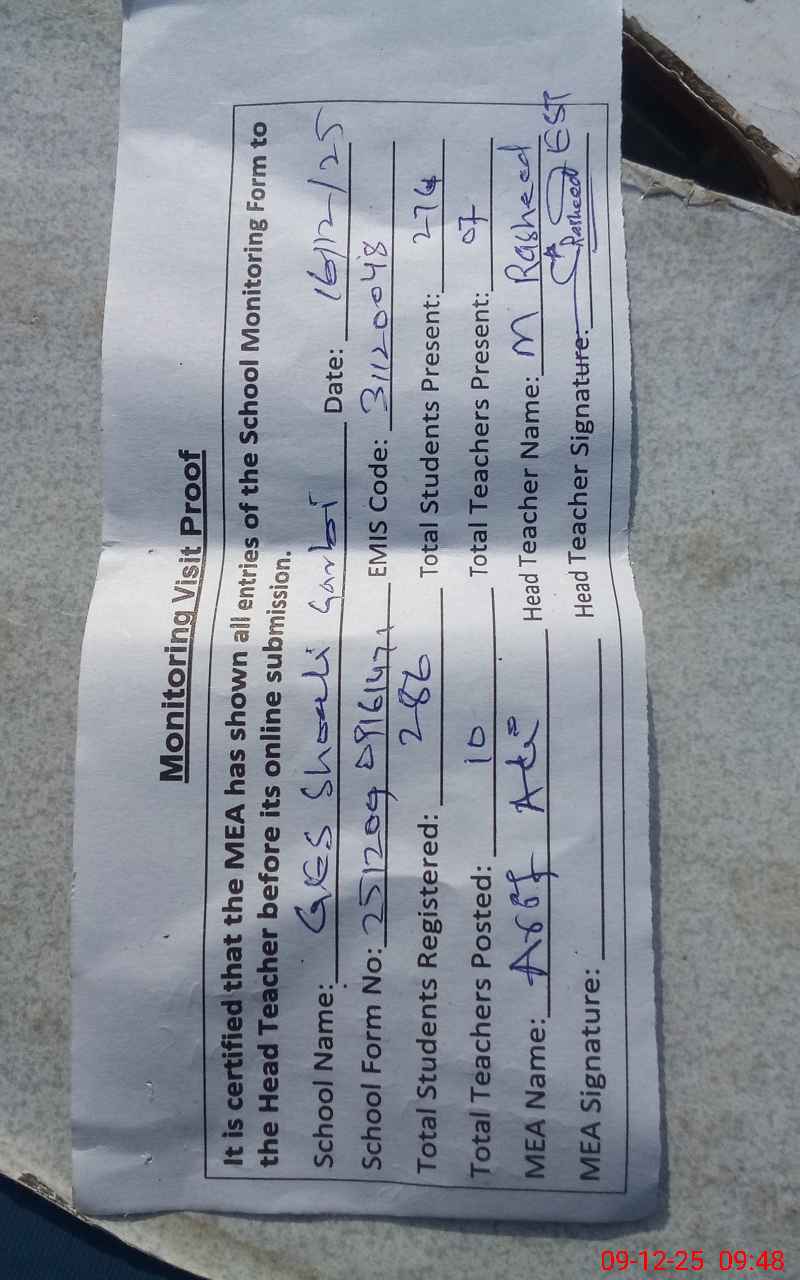 Monitoring Visit Proof
It is certified that the MEA has shown all entries of the School Monitoring Form to
the Head Teacher before its online submission.
School Name: GES Shoali Garbi Date: 16/12/25
School Form No: 251209 09161471 EMIS Code: 31120048
Total Students Registered: 286 Total Students Present: 274
Total Teachers Posted: 10 Total Teachers Present: 07
MEA Name: Head Teacher Name: M Rasheed
MEA Signature: Head Teacher Signature: Rasheed EST
09-12-25 09:48